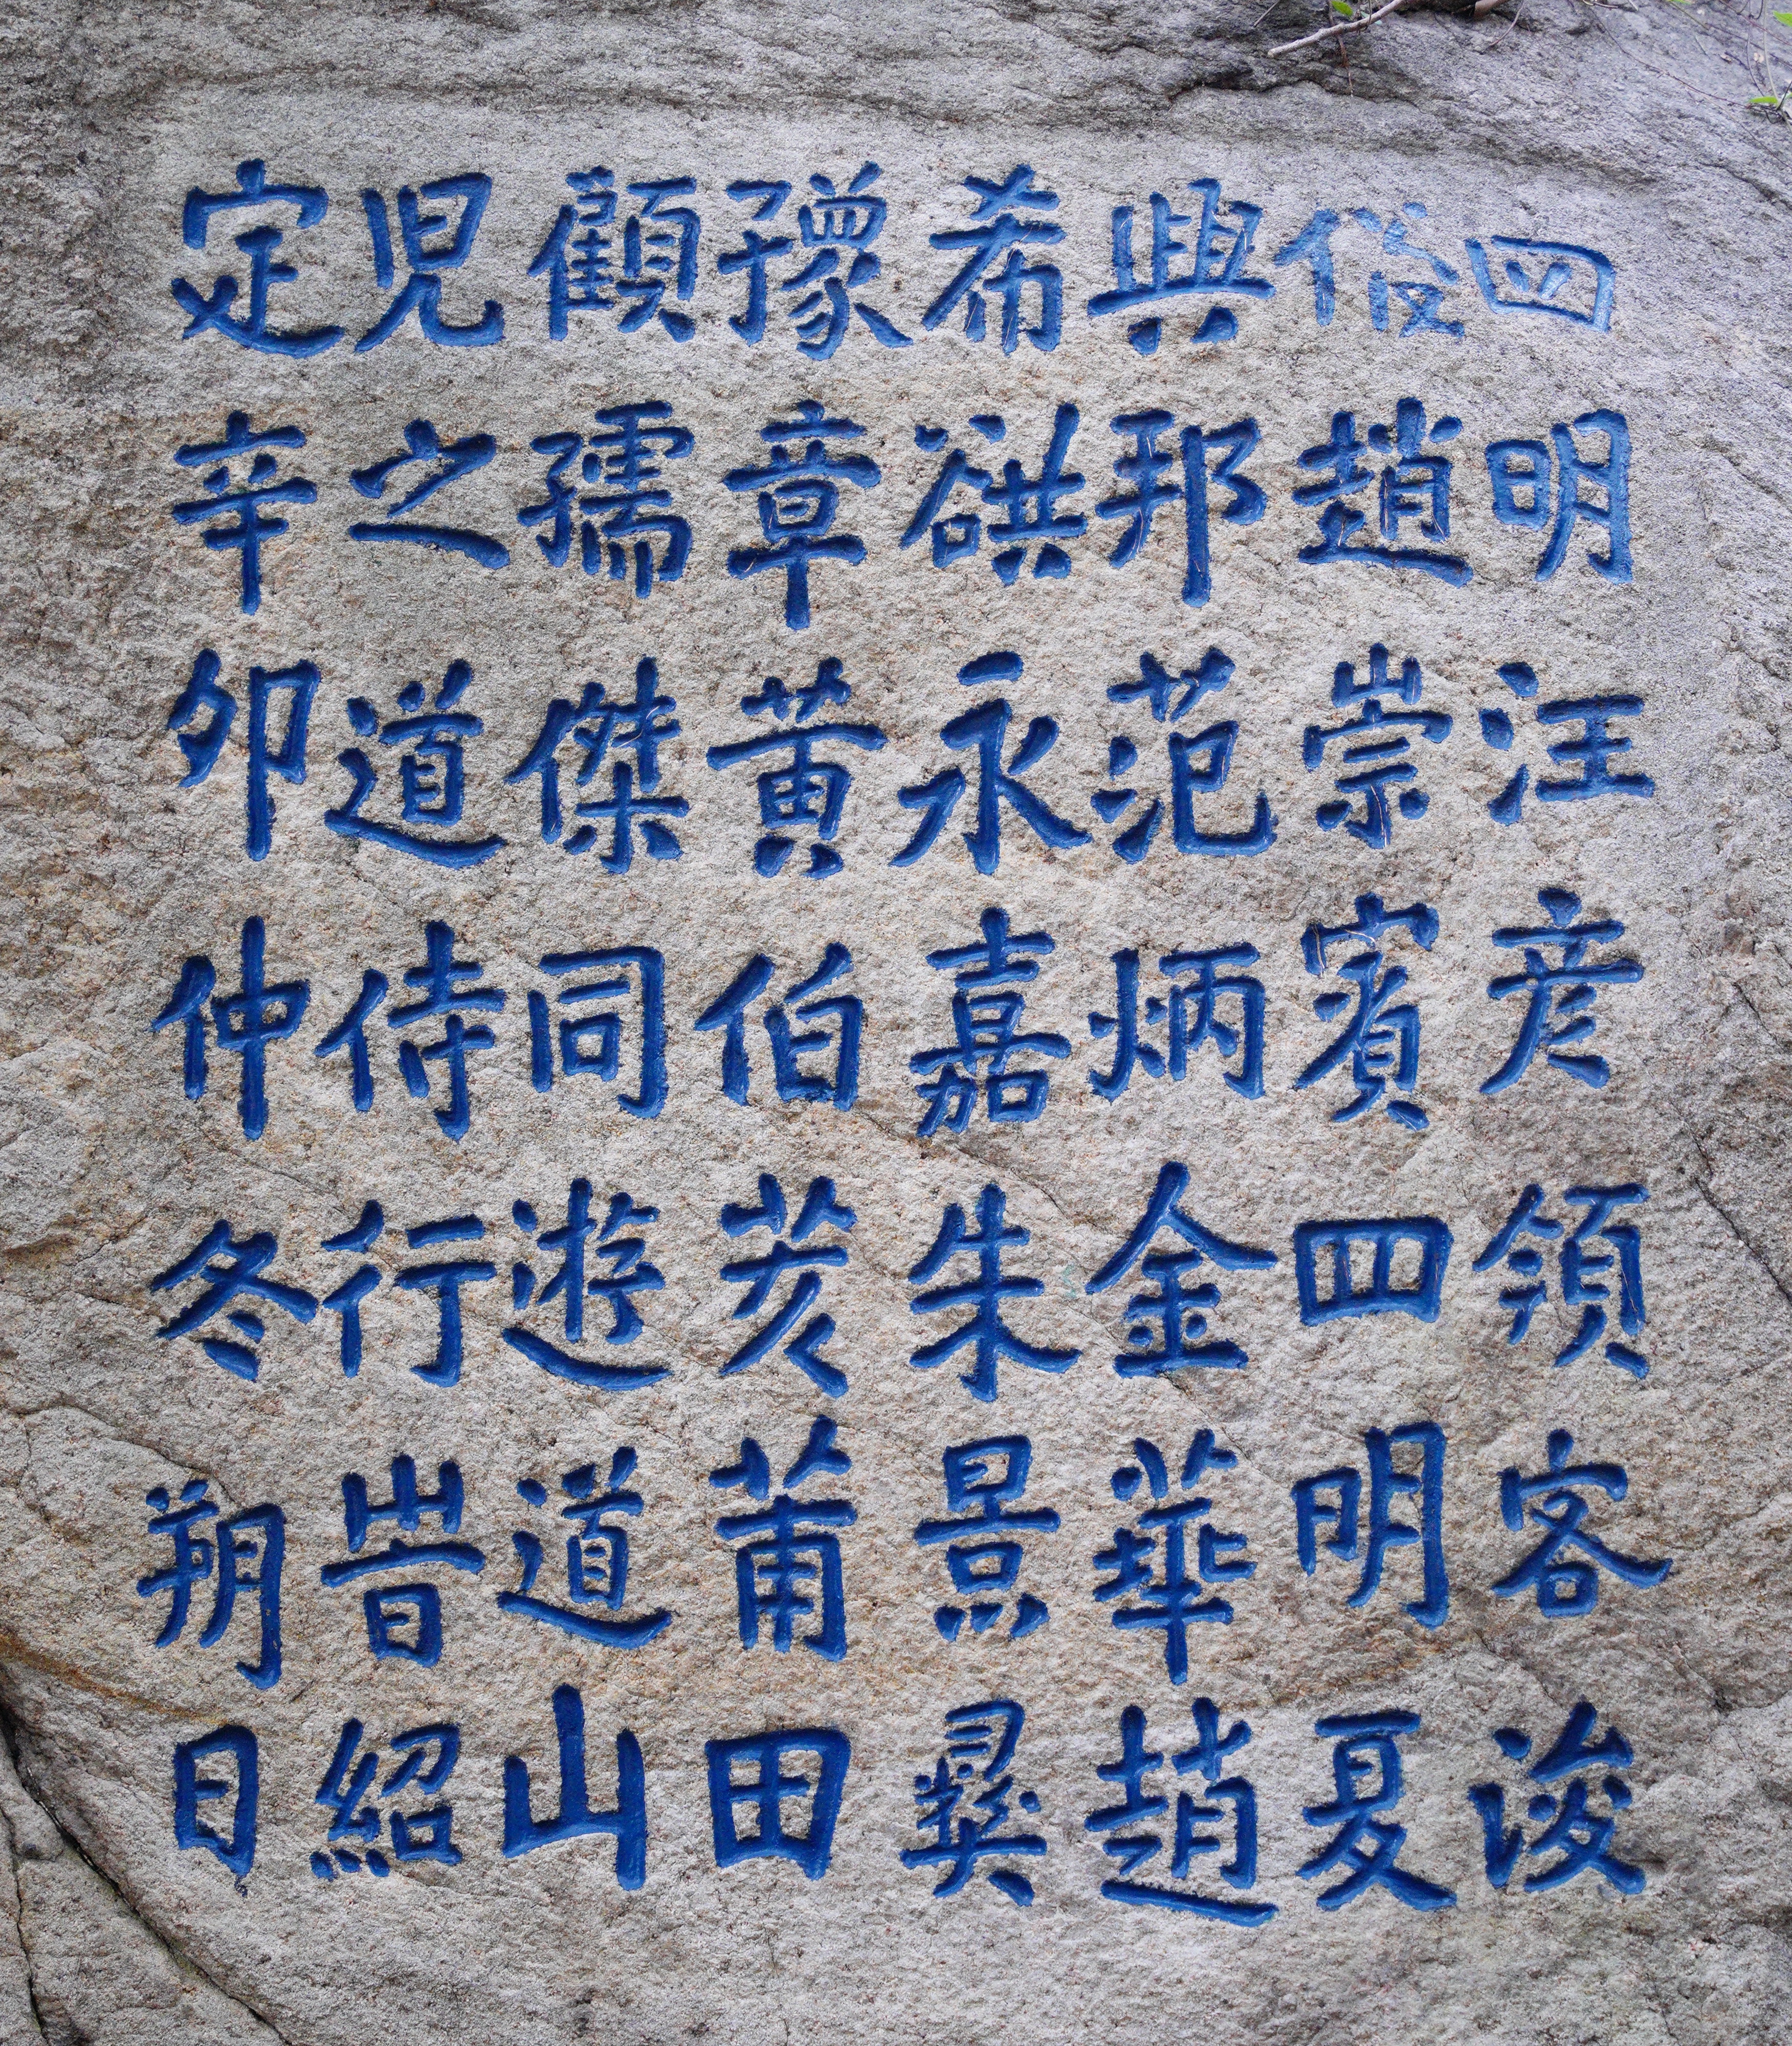 四明汪彦領客浚
俗趙崇賓四明夏
興邦范炳金華趙
希谼永嘉朱景彝
豫章黄伯茇莆田
顧孺傑同遊道山
児之道侍行旹紹
定辛卯仲冬朔日